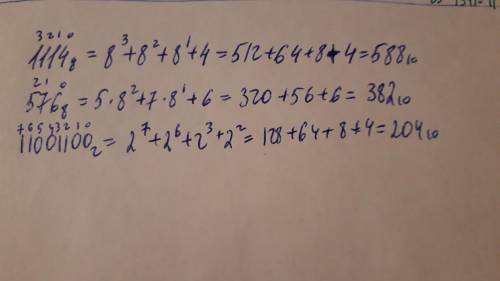 3 2 1 0
1114₈ = 8³+8²+8¹+4=512+64+8+4=588₁₀
2 1 0
576₈ = 5·8²+7·8¹+6=320+56+6=382₁₀
7 6 5 4 3 2 1 0
11001100₂=2⁷+2⁶+2³+2²=128+64+8+4=204₁₀